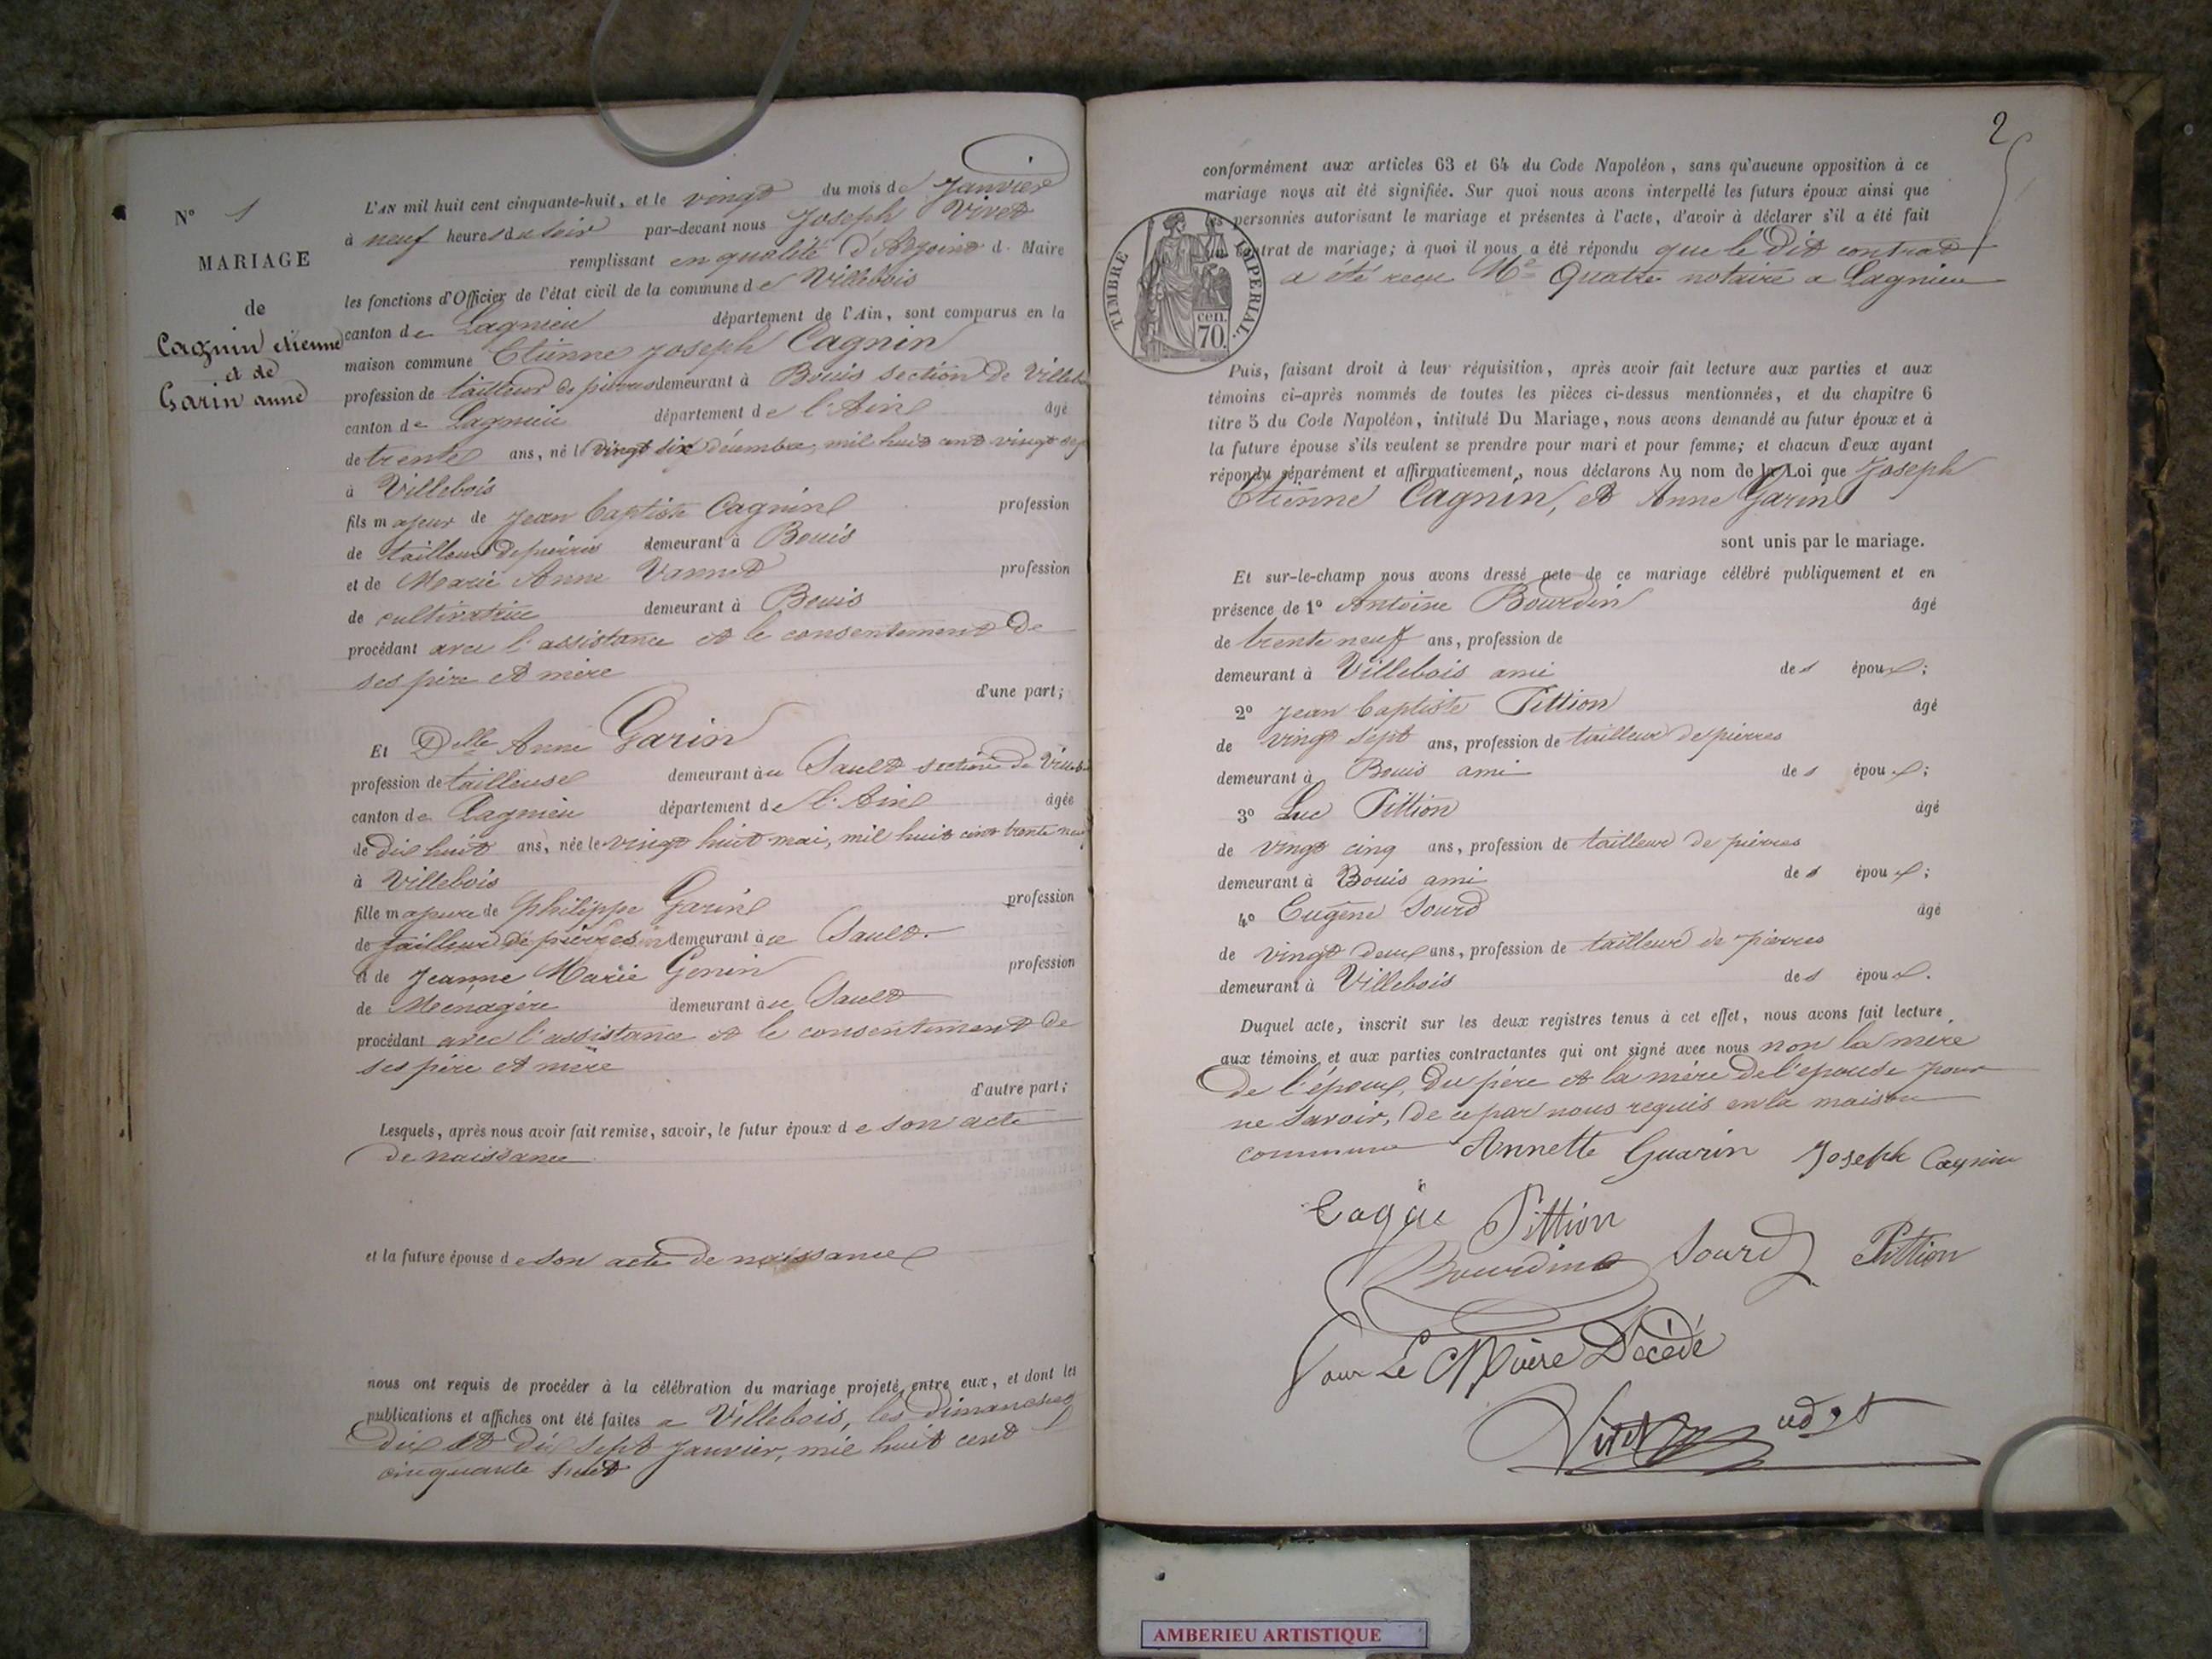 N° 1
MARIAGE
de
Cagnin etienne
et de
Garin anne
L'AN mil huit cent cinquante-huit, et le vingt du mois de Janvier
à neuf heures du soir par-devant nous Joseph Vivet
remplissant en qualité d'Adjoint d. Maire
les fonctions d'Officier de l'état civil de la commune de Villebois
canton de Lagnieu département de l'Ain, sont comparus en la
maison commune Etienne Joseph Cagnin
profession de tailleur de pierres demeurant à Bouis section de Villeb
canton de Lagnieu département de l'Ain âgé
de trente ans, né le vingt six décembre, mil huit cent vingt sept
à Villebois
fils majeur de Jean Baptiste Cagnin profession
de tailleur de pierres demeurant à Bouis
et de Marie Anne Vannet profession
de cultivatrice demeurant à Bouis
procédant avec l'assistance et le consentement de
ses père et mère
d'une part;
Et Delle Anne Garin
profession de tailleuse demeurant au Sault section de Villeb
canton de Lagnieu département de l'Ain âgée
de dix huit ans, née le vingt huit mai, mil huit cent trente neuf
à Villebois
fille majeure de Philippe Garin profession
de tailleur de pierres demeurant au Sault
et de Jeanne Marie Genin profession
de Ménagère demeurant au Sault
procédant avec l'assistance et le consentement de
ses père et mère
d'autre part;
Lesquels, après nous avoir fait remise, savoir, le futur époux de son acte
de naissance
et la future épouse de son acte de naissance
nous ont requis de procéder à la célébration du mariage projeté entre eux, et dont les
publications et affiches ont été faites a Villebois, les dimanches
dix et dix sept Janvier, mil huit cent
cinquante huit
2
conformément aux articles 63 et 64 du Code Napoléon, sans qu'aucune opposition à ce
mariage nous ait été signifiée. Sur quoi nous avons interpellé les futurs époux ainsi que
les personnes autorisant le mariage et présentes à l'acte, d'avoir à déclarer s'il a été fait
un contrat de mariage; à quoi il nous a été répondu que le dit contrat
a été reçu Me Quatre notaire a Lagnieu
TIMBRE IMPERIAL.
cen.
70.
Puis, faisant droit à leur réquisition, après avoir fait lecture aux parties et aux
témoins ci-après nommés de toutes les pièces ci-dessus mentionnées, et du chapitre 6
titre 5 du Code Napoléon, intitulé Du Mariage, nous avons demandé au futur époux et à
la future épouse s'ils veulent se prendre pour mari et pour femme; et chacun d'eux ayant
répondu séparément et affirmativement, nous déclarons Au nom de la Loi que Joseph
Etienne Cagnin, et Anne Garin
sont unis par le mariage.
Et sur-le-champ nous avons dressé acte de ce mariage célébré publiquement et en
présence de 1° Antoine Bourdin âgé
de trente neuf ans, profession de
demeurant à Villebois ami des époux;
2° Jean Baptiste Pittion âgé
de vingt sept ans, profession de tailleur de pierres
demeurant à Bouis ami des époux;
3° Luc Pittion âgé
de vingt cinq ans, profession de tailleur de pierres
demeurant à Bouis ami des époux;
4° Eugène Sourd âgé
de vingt deux ans, profession de tailleur de pierres
demeurant à Villebois des époux.
Duquel acte, inscrit sur les deux registres tenus à cet effet, nous avons fait lecture
aux témoins et aux parties contractantes qui ont signé avec nous non la mère
de l'époux, du père et la mère de l'épouse pour
ne savoir, de ce par nous requis en la maison
commune Annette Guarin Joseph Cagnin
Pittion
Bourdin Sourd Pittion
Pour Le Maire Décédé
Vivet adjt
AMBERIEU ARTISTIQUE